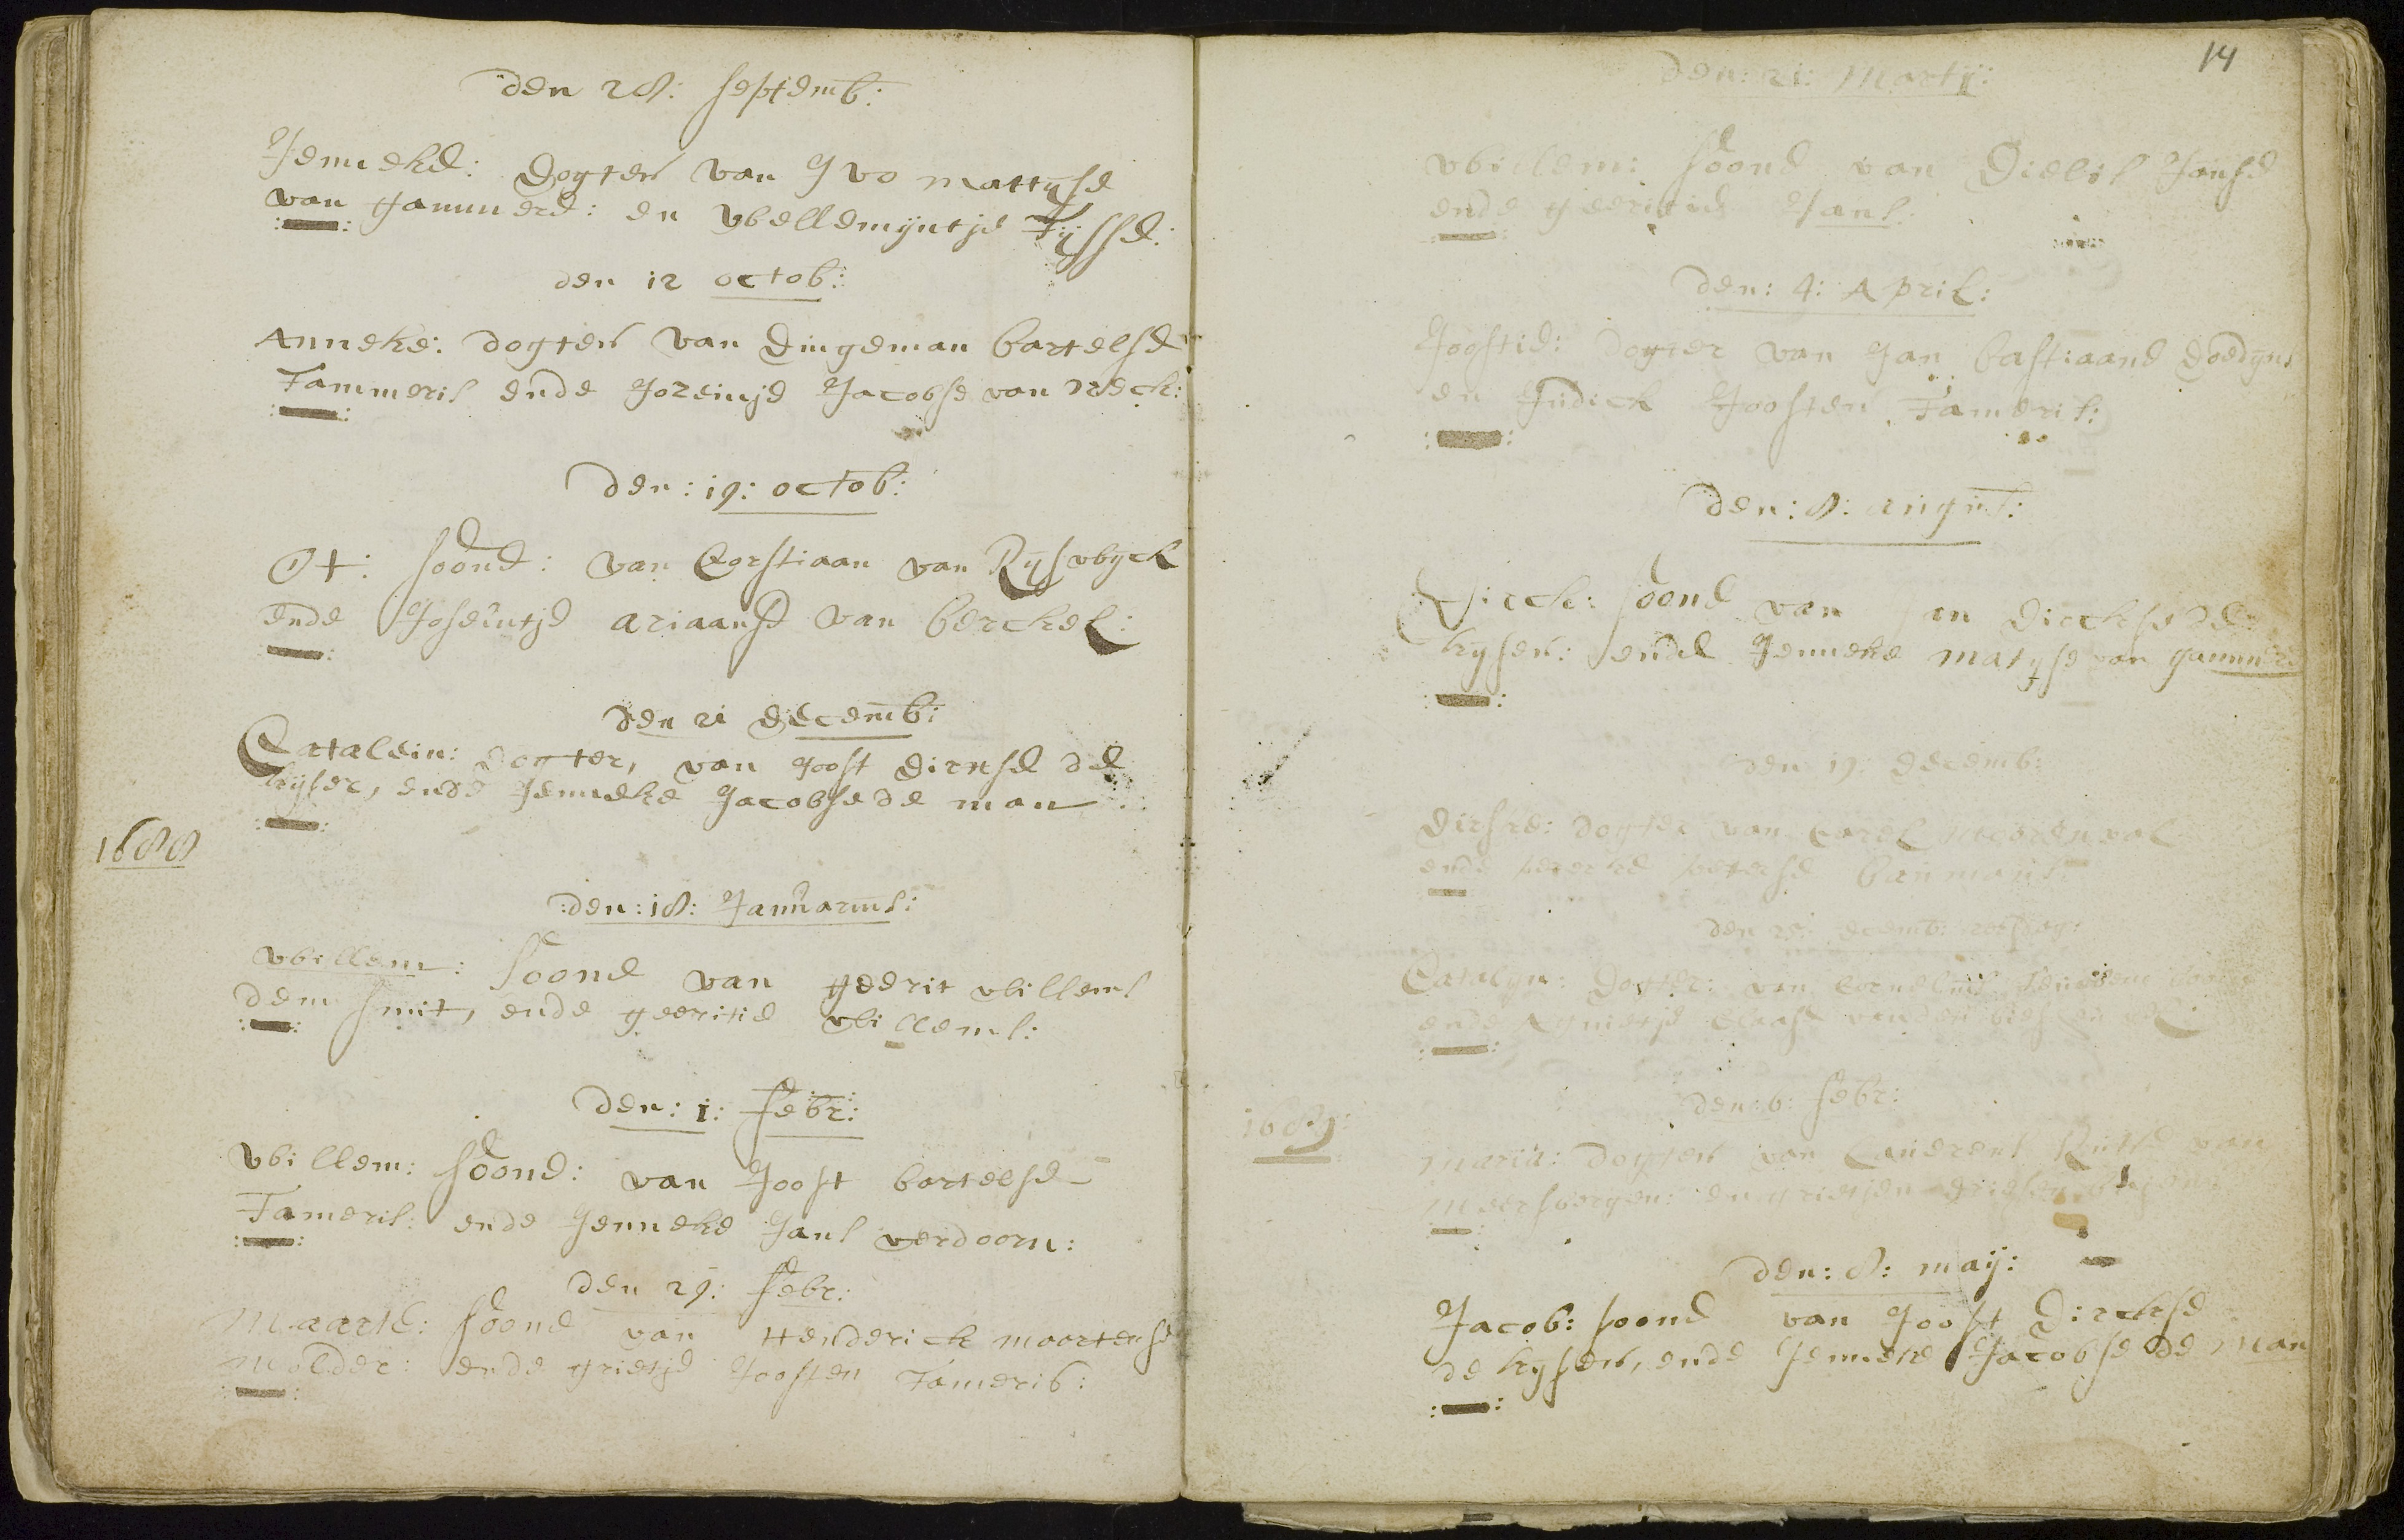 den 28: septemb:
Jenneke: dogter van Ivo mattijse
van gammere: en Willemijntje Tijsse:
den 12 octob:
Anneke: dogter van dingeman bartelse
Tammeris ende Joreinje Jacobse van neck:
den: 19: octob:
Ot: soone: van Corstiaan van Rijswijck
ende Joseintje ariaanse van berckel:
den 21 decemb:
Catalein: dogter, van Joost dircse de
kijser, ende Jenneke Jacobse de man
1688
den: 18: Januarius:
Willem: soone van geerit willems
dem smit, ende geeritie willems:
den: 1: Febr:
Willem: soone: van Joost bartelse
Tameris: ende Jenneke Jans verdoorn:
den 29: Febr:
Maarte: soone van Henderick maortense
molder: ende grietje Joosten Tameris:
14
den: 21: Martij:
Willem: soone van Dielis Janse
ende geeritie Jans
den: 4: April:
Joostie: dogter van Jan bastiaane doedijns
en Judick Joosten Tameris:
den: 8: august:
Dirck: soone van Jan dirckse de
kijser: ende Jenneke matijse van gammere
den 19: decemb:
dirske: dogter van Carel
ende peterse bauman
den 25: decemb:
Catalyn: dogter: van Cornelius
ende Agnietje Claase van den
1689:
den: 6: febr:
Maria: dogter van Lauerens Rutse van
Meersbergen: en grietjen
den: 8: maij:
Jacob: soone van Joost dirckse
de kijser, ende Jenneke Jacobse de man